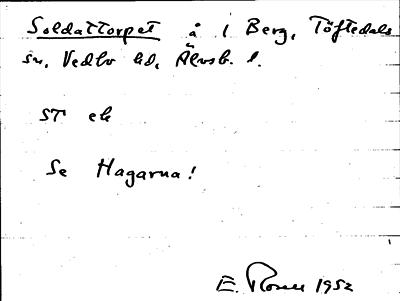 Soldattorpet å 1 Berg, Töftedals
sn, Vedbo hd, Älvsb. l.
ST ek
Se Hagarna!
E. 1952